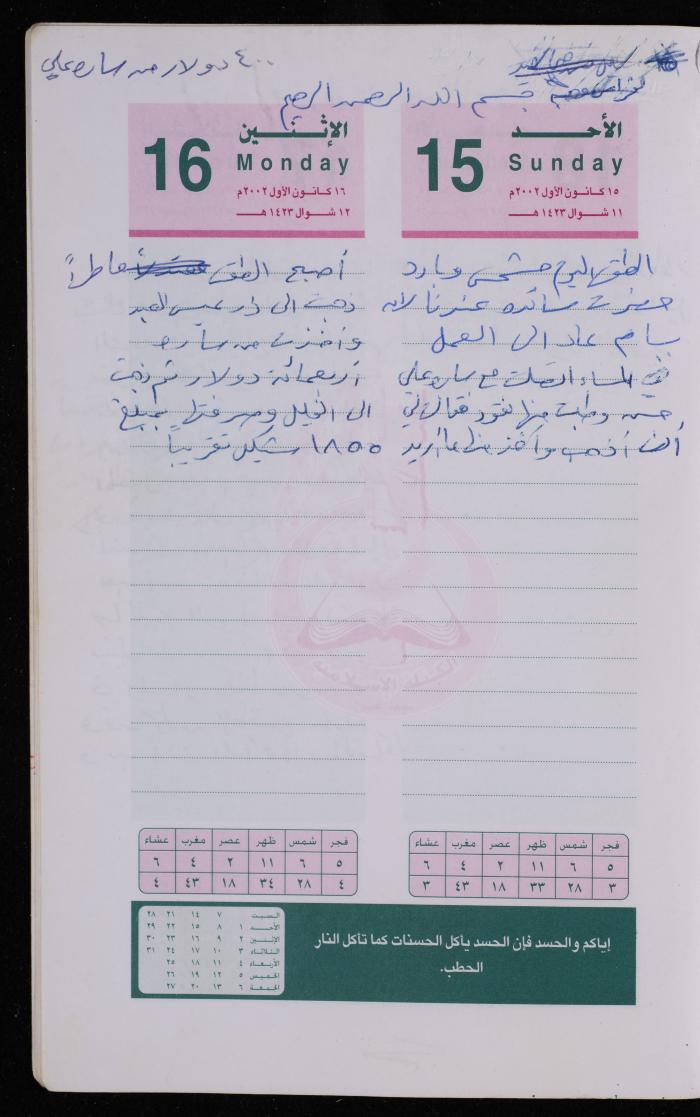 ٤٠٠ دولار من ساره علي
بسم الله الرحمن الرحيم
الأحد
15
Sunday
١٥ كانون الأول ٢٠٠٢م
١١ شوال ١٤٢٣ هـ
الطقس اليوم مشمس وبارد
حضرت سائده عندنا لأن
بسام عاد الى العمل
في المساء اتصلت مع ساره علي
حسن وطلبت منها نقود فقالت لي
أن أذهب وآخذ منها ما أريد
الإثنين
16
Monday
١٦ كانون الأول ٢٠٠٢م
١٢ شوال ١٤٢٣ هـ
أصبح الطقس ماطراً
ذهبت الى دار عيس العبد
وأخذت من ساره
أربعمائة دولار ثم ذهبت
الى الخليل وصرفتها بمبلغ
١٨٥٥ شيكل تقريباً
الكتلة الإسلامية
فجر شمس ظهر عصر مغرب عشاء
٥ ٦ ١١ ٢ ٤ ٦
٣ ٢٨ ٣٣ ١٨ ٤٣ ٣
فجر شمس ظهر عصر مغرب عشاء
٥ ٦ ١١ ٢ ٤ ٦
٤ ٢٨ ٣٤ ١٨ ٤٣ ٤
إياكم والحسد فإن الحسد يأكل الحسنات كما تأكل النار
الحطب.
السبت ٧ ١٤ ٢١ ٢٨
الأحد ١ ٨ ١٥ ٢٢ ٢٩
الإثنين ٢ ٩ ١٦ ٢٣ ٣٠
الثلاثاء ٣ ١٠ ١٧ ٢٤ ٣١
الأربعاء ٤ ١١ ١٨ ٢٥
الخميس ٥ ١٢ ١٩ ٢٦
الجمعة ٦ ١٣ ٢٠ ٢٧